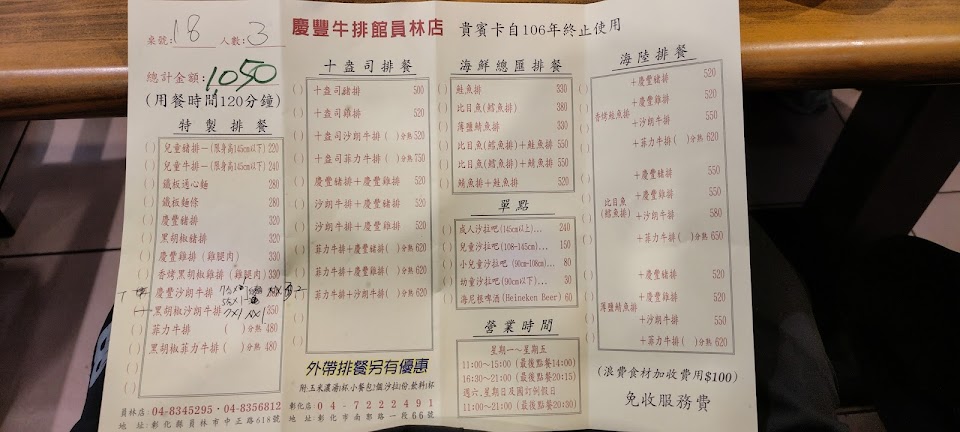 慶豐牛排館員林店
貴賓卡自106年終止使用
桌號: 18 人數: 3
總計金額: 1050
(用餐時間120分鐘)
特製排餐
( ) 兒童豬排－(限身高145cm以下) 220
( ) 兒童牛排－(限身高145cm以下) 240
( ) 鐵板通心麵 280
( ) 鐵板麵條 280
( ) 慶豐豬排 320
( ) 黑胡椒豬排 320
( ) 慶豐雞排 (雞腿肉) 330
( ) 香烤黑胡椒雞排 (雞腿肉) 330
慶豐沙朗牛排
黑胡椒沙朗牛排 350
( ) 菲力牛排 ( )分熟 480
( ) 黑胡椒菲力牛排 ( )分熟 480
員林店: 04-8345295・04-8356812
地 址:彰化縣員林市中正路618號
十盎司排餐
( ) 十盎司豬排 500
( ) 十盎司雞排 520
( ) 十盎司沙朗牛排 ( )分熟 520
( ) 十盎司菲力牛排 ( )分熟 750
( ) 慶豐牛排＋慶豐雞排 520
( ) 沙朗牛排＋慶豐豬排 520
( ) 沙朗牛排＋慶豐雞排 520
( ) 菲力牛排＋慶豐豬排 ( )分熟 620
( ) 菲力牛排＋慶豐雞排 ( )分熟 620
( ) 菲力牛排＋沙朗牛排 ( )分熟 620
外帶排餐另有優惠
附:玉米濃湯1杯.小餐包2個.沙拉1份.飲料1杯
彰化店: 04-7222491
地 址:彰化市南郭路一段66號
海鮮總匯排餐
( ) 鮭魚排 330
( ) 比目魚(鱈魚排) 380
( ) 薄鹽鯖魚排 330
( ) 比目魚(鱈魚排)＋鮭魚排 550
( ) 比目魚(鱈魚排)＋鯖魚排 550
( ) 鯖魚排＋鮭魚排 520
單點
( ) 成人沙拉吧(145cm以上)... 240
( ) 兒童沙拉吧(108-145cm)... 150
( ) 小兒童沙拉吧 (90cm-108cm)... 80
( ) 幼童沙拉吧(90cm以下)... 30
( ) 海尼根啤酒(Heineken Beer) 60
營業時間
星期一～星期五
11:00～15:00 (最後點餐14:00)
16:30～21:00 (最後點餐20:15)
週六.星期日及國訂例假日
11:00～21:00 (最後點餐20:30)
海陸排餐
香烤鮭魚排
( ) ＋慶豐豬排 520
( ) ＋慶豐雞排 520
( ) ＋沙朗牛排 550
( ) ＋菲力牛排 ( )分熟 620
比目魚
(鱈魚排)
( ) ＋慶豐豬排 550
( ) ＋慶豐雞排 550
( ) ＋沙朗牛排 580
( ) ＋菲力牛排 ( )分熟 650
薄鹽鯖魚排
( ) ＋慶豐豬排 520
( ) ＋慶豐雞排 520
( ) ＋沙朗牛排 550
( ) ＋菲力牛排 ( )分熟 620
(浪費食材加收費用$100)
免收服務費